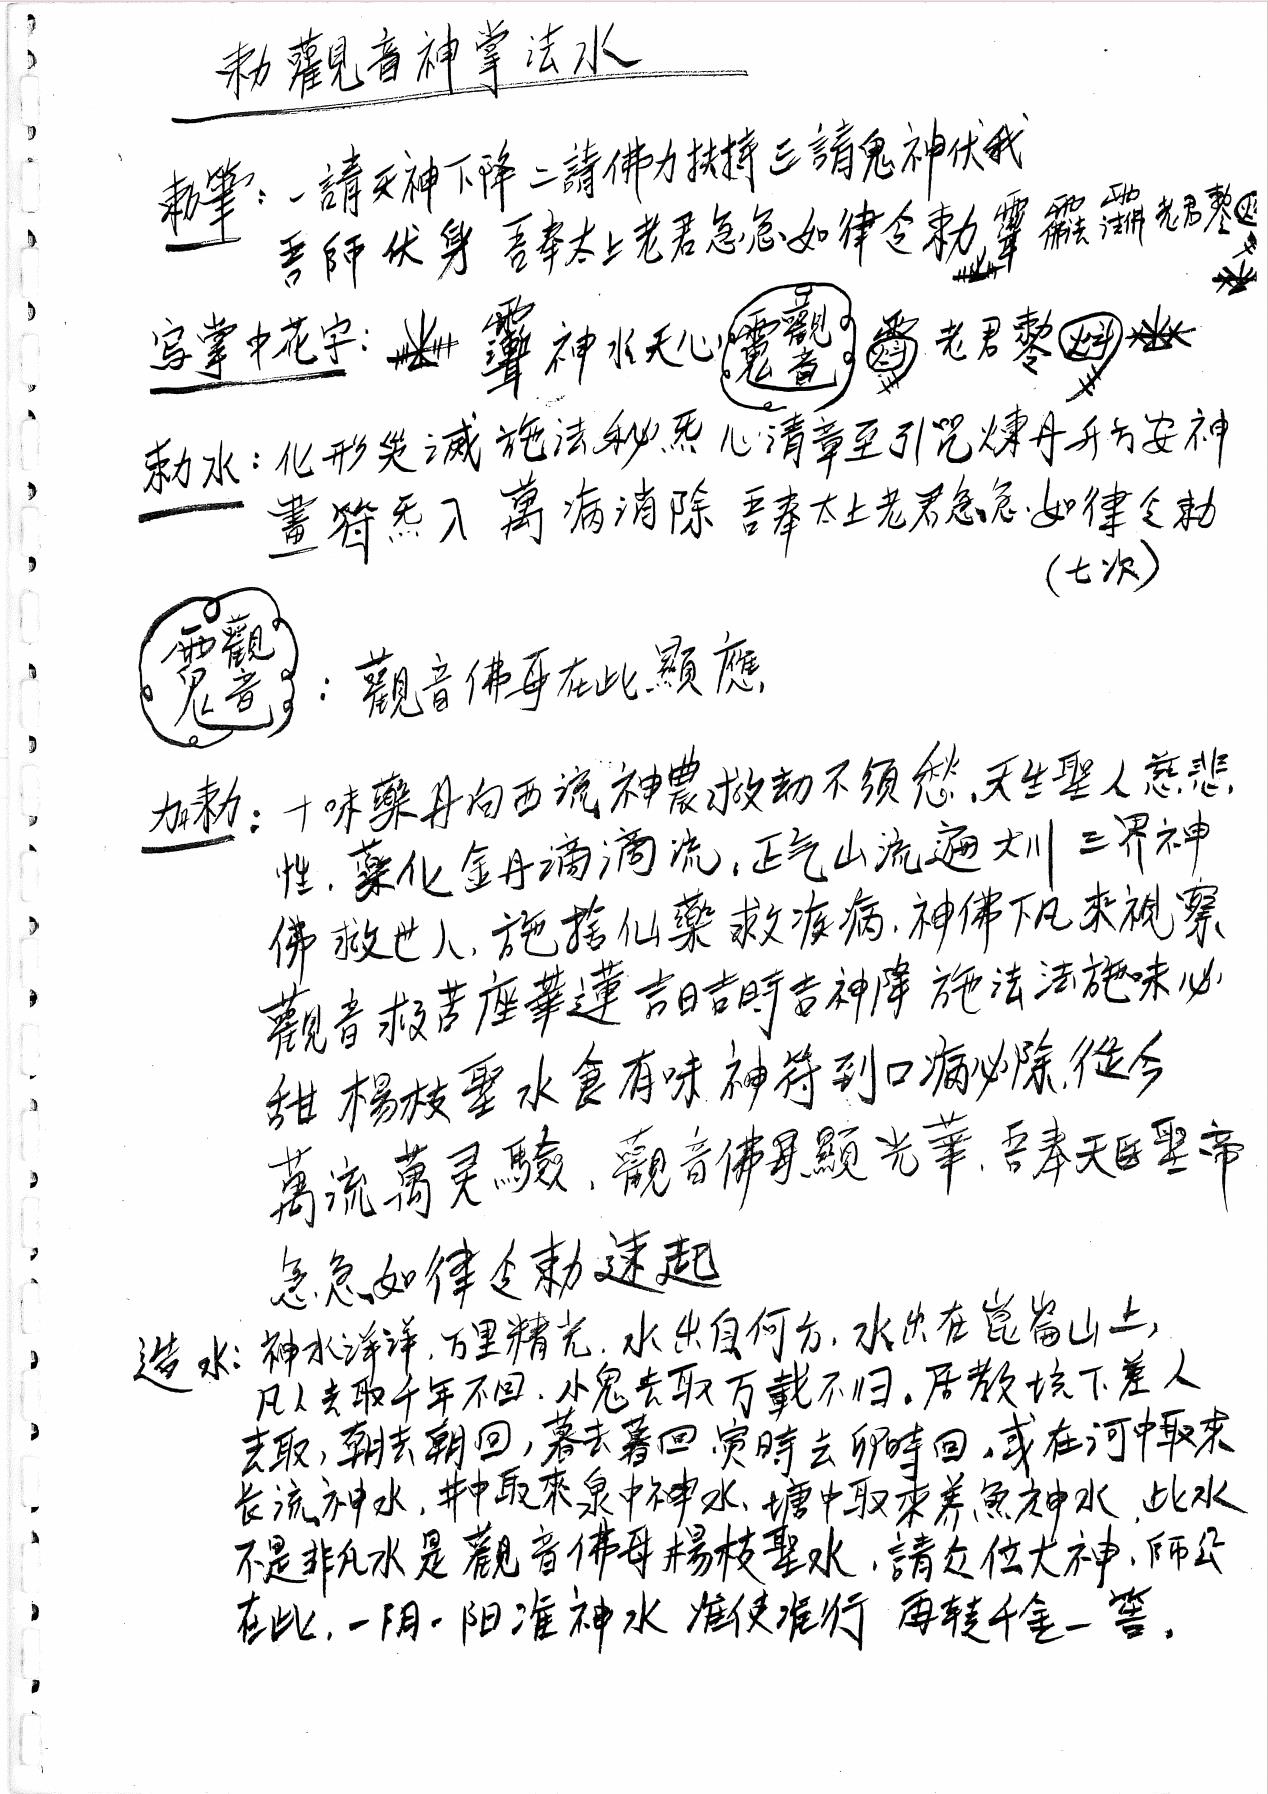 勅觀音神掌法水
勅筆：一請天神下降二請佛力扶持三請鬼神伏我
吾師伏身 吾奉太上老君急急如律令勅 老君
写掌中花字： 神水天心 觀音 老君
勅水：化形災滅施法秘炁心清章至引咒煉丹升方安神
畫符炁入 萬病消除 吾奉太上老君急急如律令勅
（七次）
觀音：觀音佛母在此顯應
加勅：十味藥丹向西流神農救劫不須愁.天生聖人慈悲
性.藥化金丹滴滴流.正气山流遍大川 三界神
佛救世人.施捨仙藥救疾病.神佛下凡來視察
觀音救苦座華蓮吉日吉時吉神降 施法法施味必
甜 楊枝聖水食有味神符到口病必除.從今
萬流萬灵驗.觀音佛母顯光華.吾奉天医聖帝
急急如律令勅速起
造水：神水洋洋.万里精光.水出自何方.水出在崑崙山上,
凡人去取千年不回.小鬼去取万載不归。居教坑下差人
去取,朝去朝回,暮去暮回.寅時去卯時回。或在河中取來
長流神水.井中取來泉中神水.塘中取來养魚神水.此水
不是非凡水是觀音佛母楊枝聖水.請众位大神.師公
在此.一阴一阳准神水 准使准行 再转千金一筶。